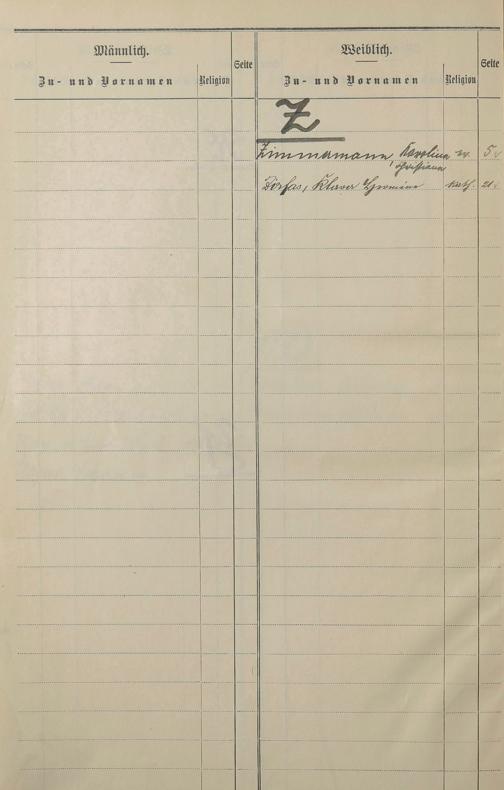 Männlich.
Zu- und Vornamen Religion Seite
Weiblich.
Zu- und Vornamen Religion Seite
Z
Zimmermann, Karolina ev. 5
Christiana
Klara Hermine kath. 21